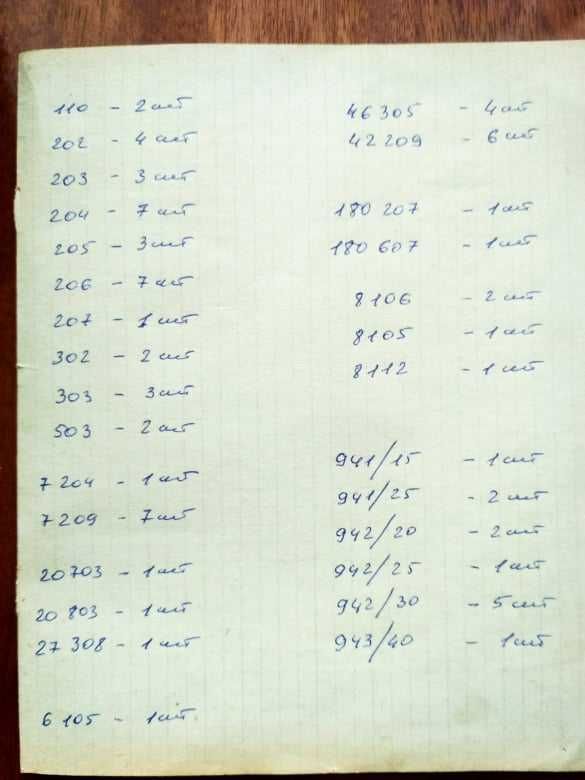 110 - 2 шт
202 - 4 шт
203 - 3 шт
204 - 7 шт
205 - 3 шт
206 - 7 шт
207 - 1 шт
302 - 2 шт
303 - 3 шт
503 - 2 шт
7 204 - 1 шт
7 209 - 7 шт
20 703 - 1 шт
20 803 - 1 шт
27 308 - 1 шт
6 105 - 1 шт.
46305 - 4 шт
42 209 - 6 шт
180 207 - 1 шт
180 607 - 1 шт
8106 - 2 шт
8105 - 1 шт
8112 - 1 шт
941/15 - 1 шт
941/25 - 2 шт
942/20 - 2 шт
942/25 - 1 шт
942/30 - 5 шт
943/40 - 1 шт